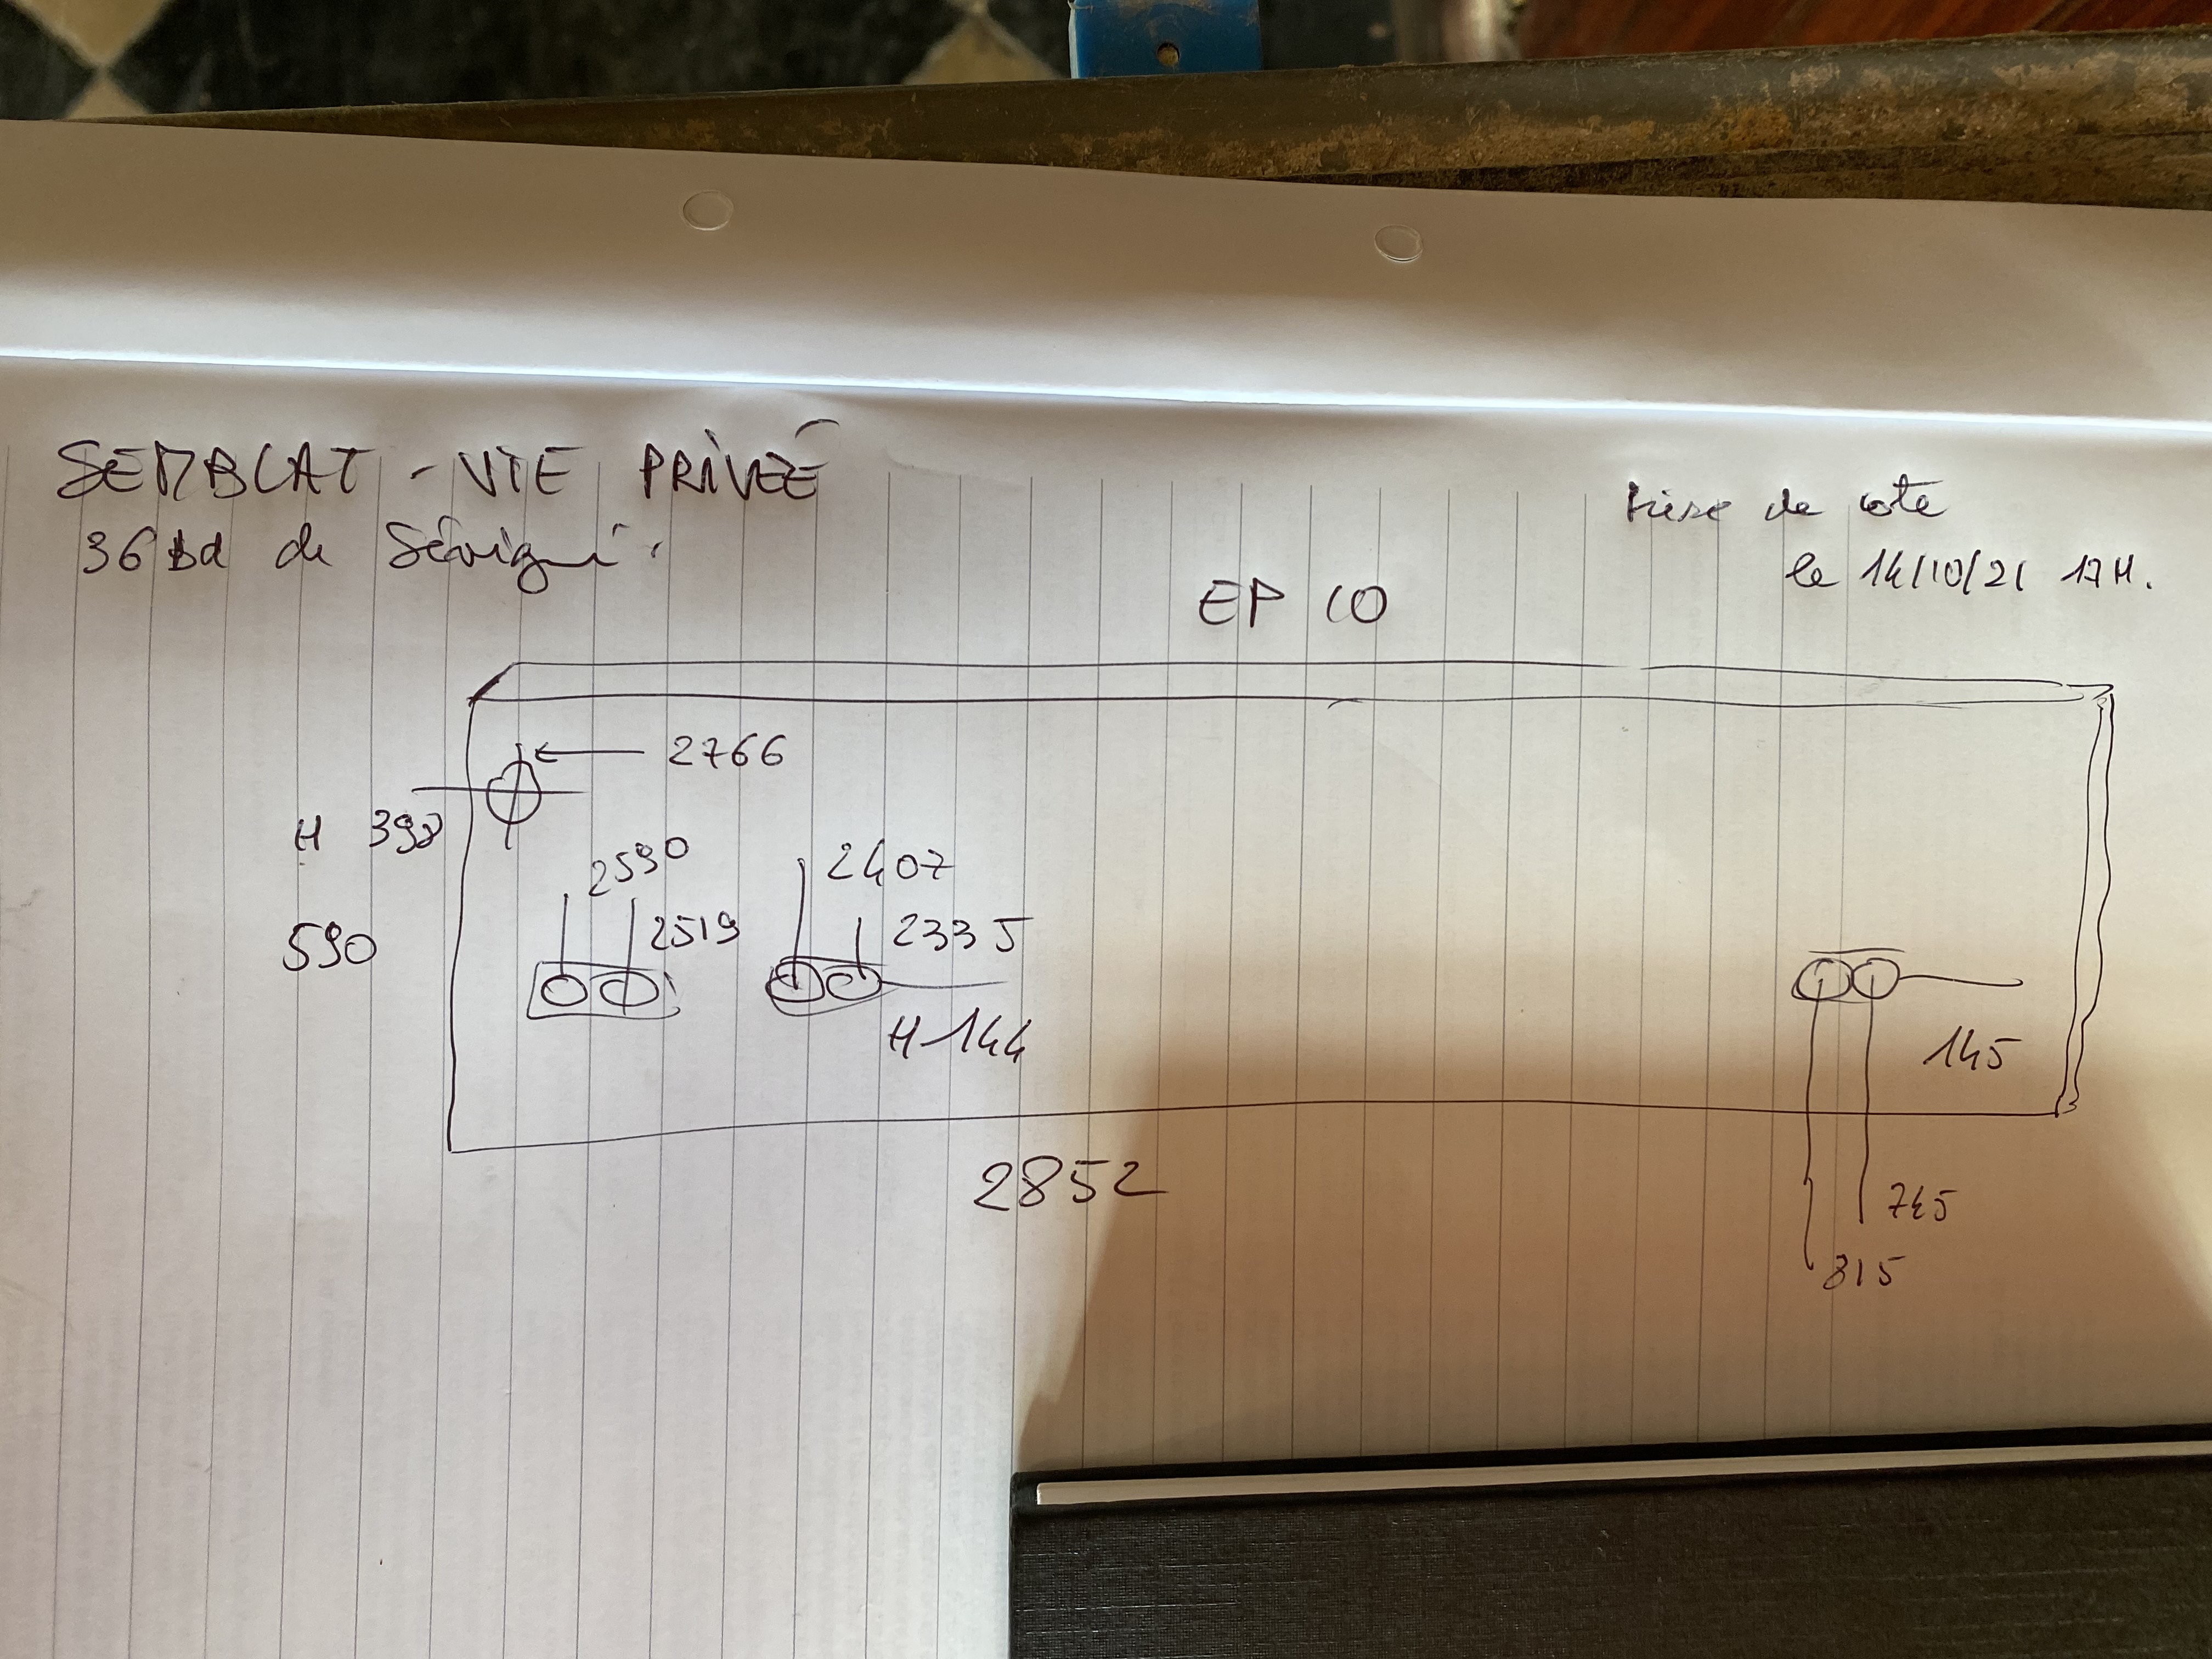 SEMBLAT - VIE PRIVÉE
36 Bd de Sévigné.
Prise de cote
le 14/10/21 17H.
EP 10
2766
H 398
2590
2407
590
2519
2335
H 144
145
2852
745
815